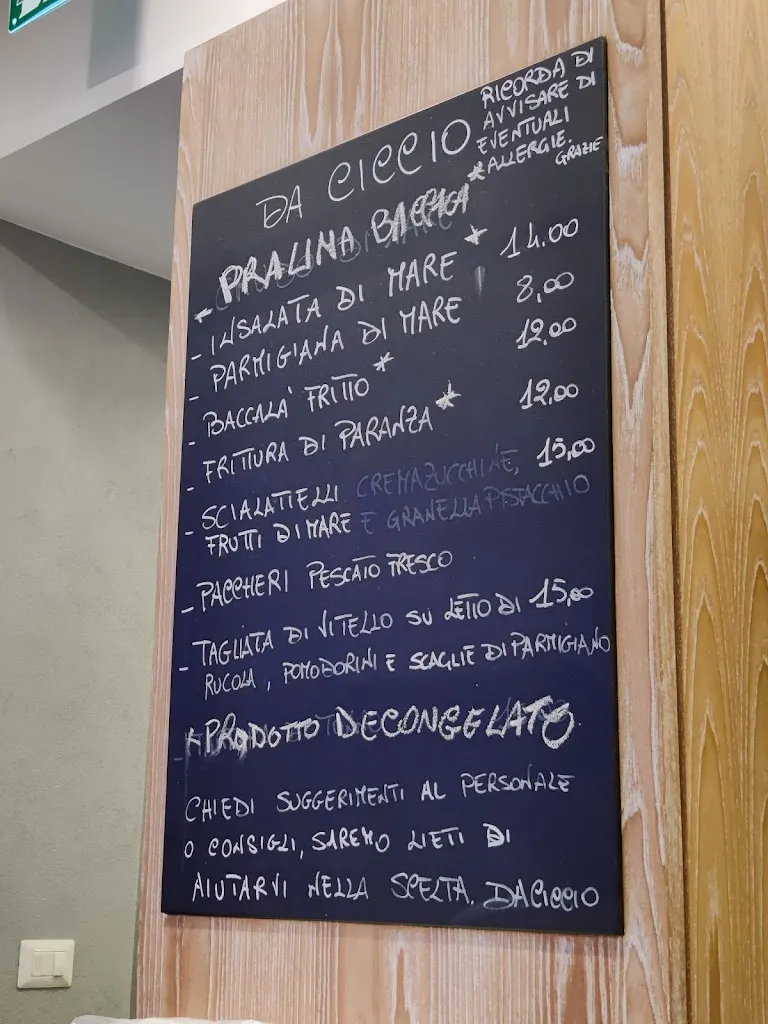 DA CICCIO
RICORDA DI
AVVISARE DI
EVENTUALI
ALLERGIE.
GRAZIE
- PRALINA *
- INSALATA DI MARE * 14.00
- PARMIGIANA DI MARE 8,00
- BACCALA' FRITTO * 12.00
- FRITTURA DI PARANZA * 12.00
- SCIALATIELLI CREMA ZUCCHINE, 15,00
FRUTTI DI MARE E GRANELLA PISTACCHIO
- PACCHERI PESCATO FRESCO
- TAGLIATA DI VITELLO SU LETTO DI 15,00
RUCOLA, POMODORINI E SCAGLIE DI PARMIGIANO
* PRODOTTO DECONGELATO
CHIEDI SUGGERIMENTI AL PERSONALE
O CONSIGLI, SAREMO LIETI DI
AIUTARVI NELLA SCELTA. DA CICCIO